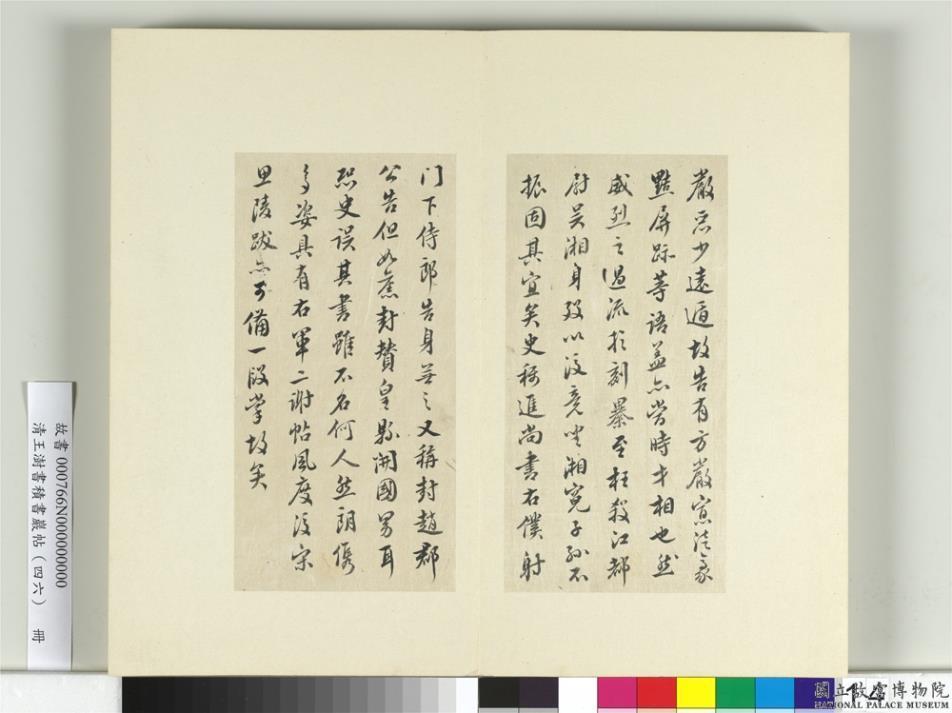 嚴忌少遠遁故告有方嚴寘法豪
黠屏跡等語蓋亦當時才相也然
威烈之過流於剝暴至枉殺江都
尉吳湘身歿以後竟坐湘冤子孫不
振固其宜矣史稱進尚書右僕射
门下侍郎告身無之又稱封趙郡
公告但如舊封贊皇縣開國男耳
恐史误其書雖不名何人然朗儁
多姿具有右軍二谢帖風度後宋
思陵跋亦可備一段掌故矣
故書 000766N000000000
清王澍書積書巖帖（四六） 冊
國立故宮博物院
NATIONAL PALACE MUSEUM